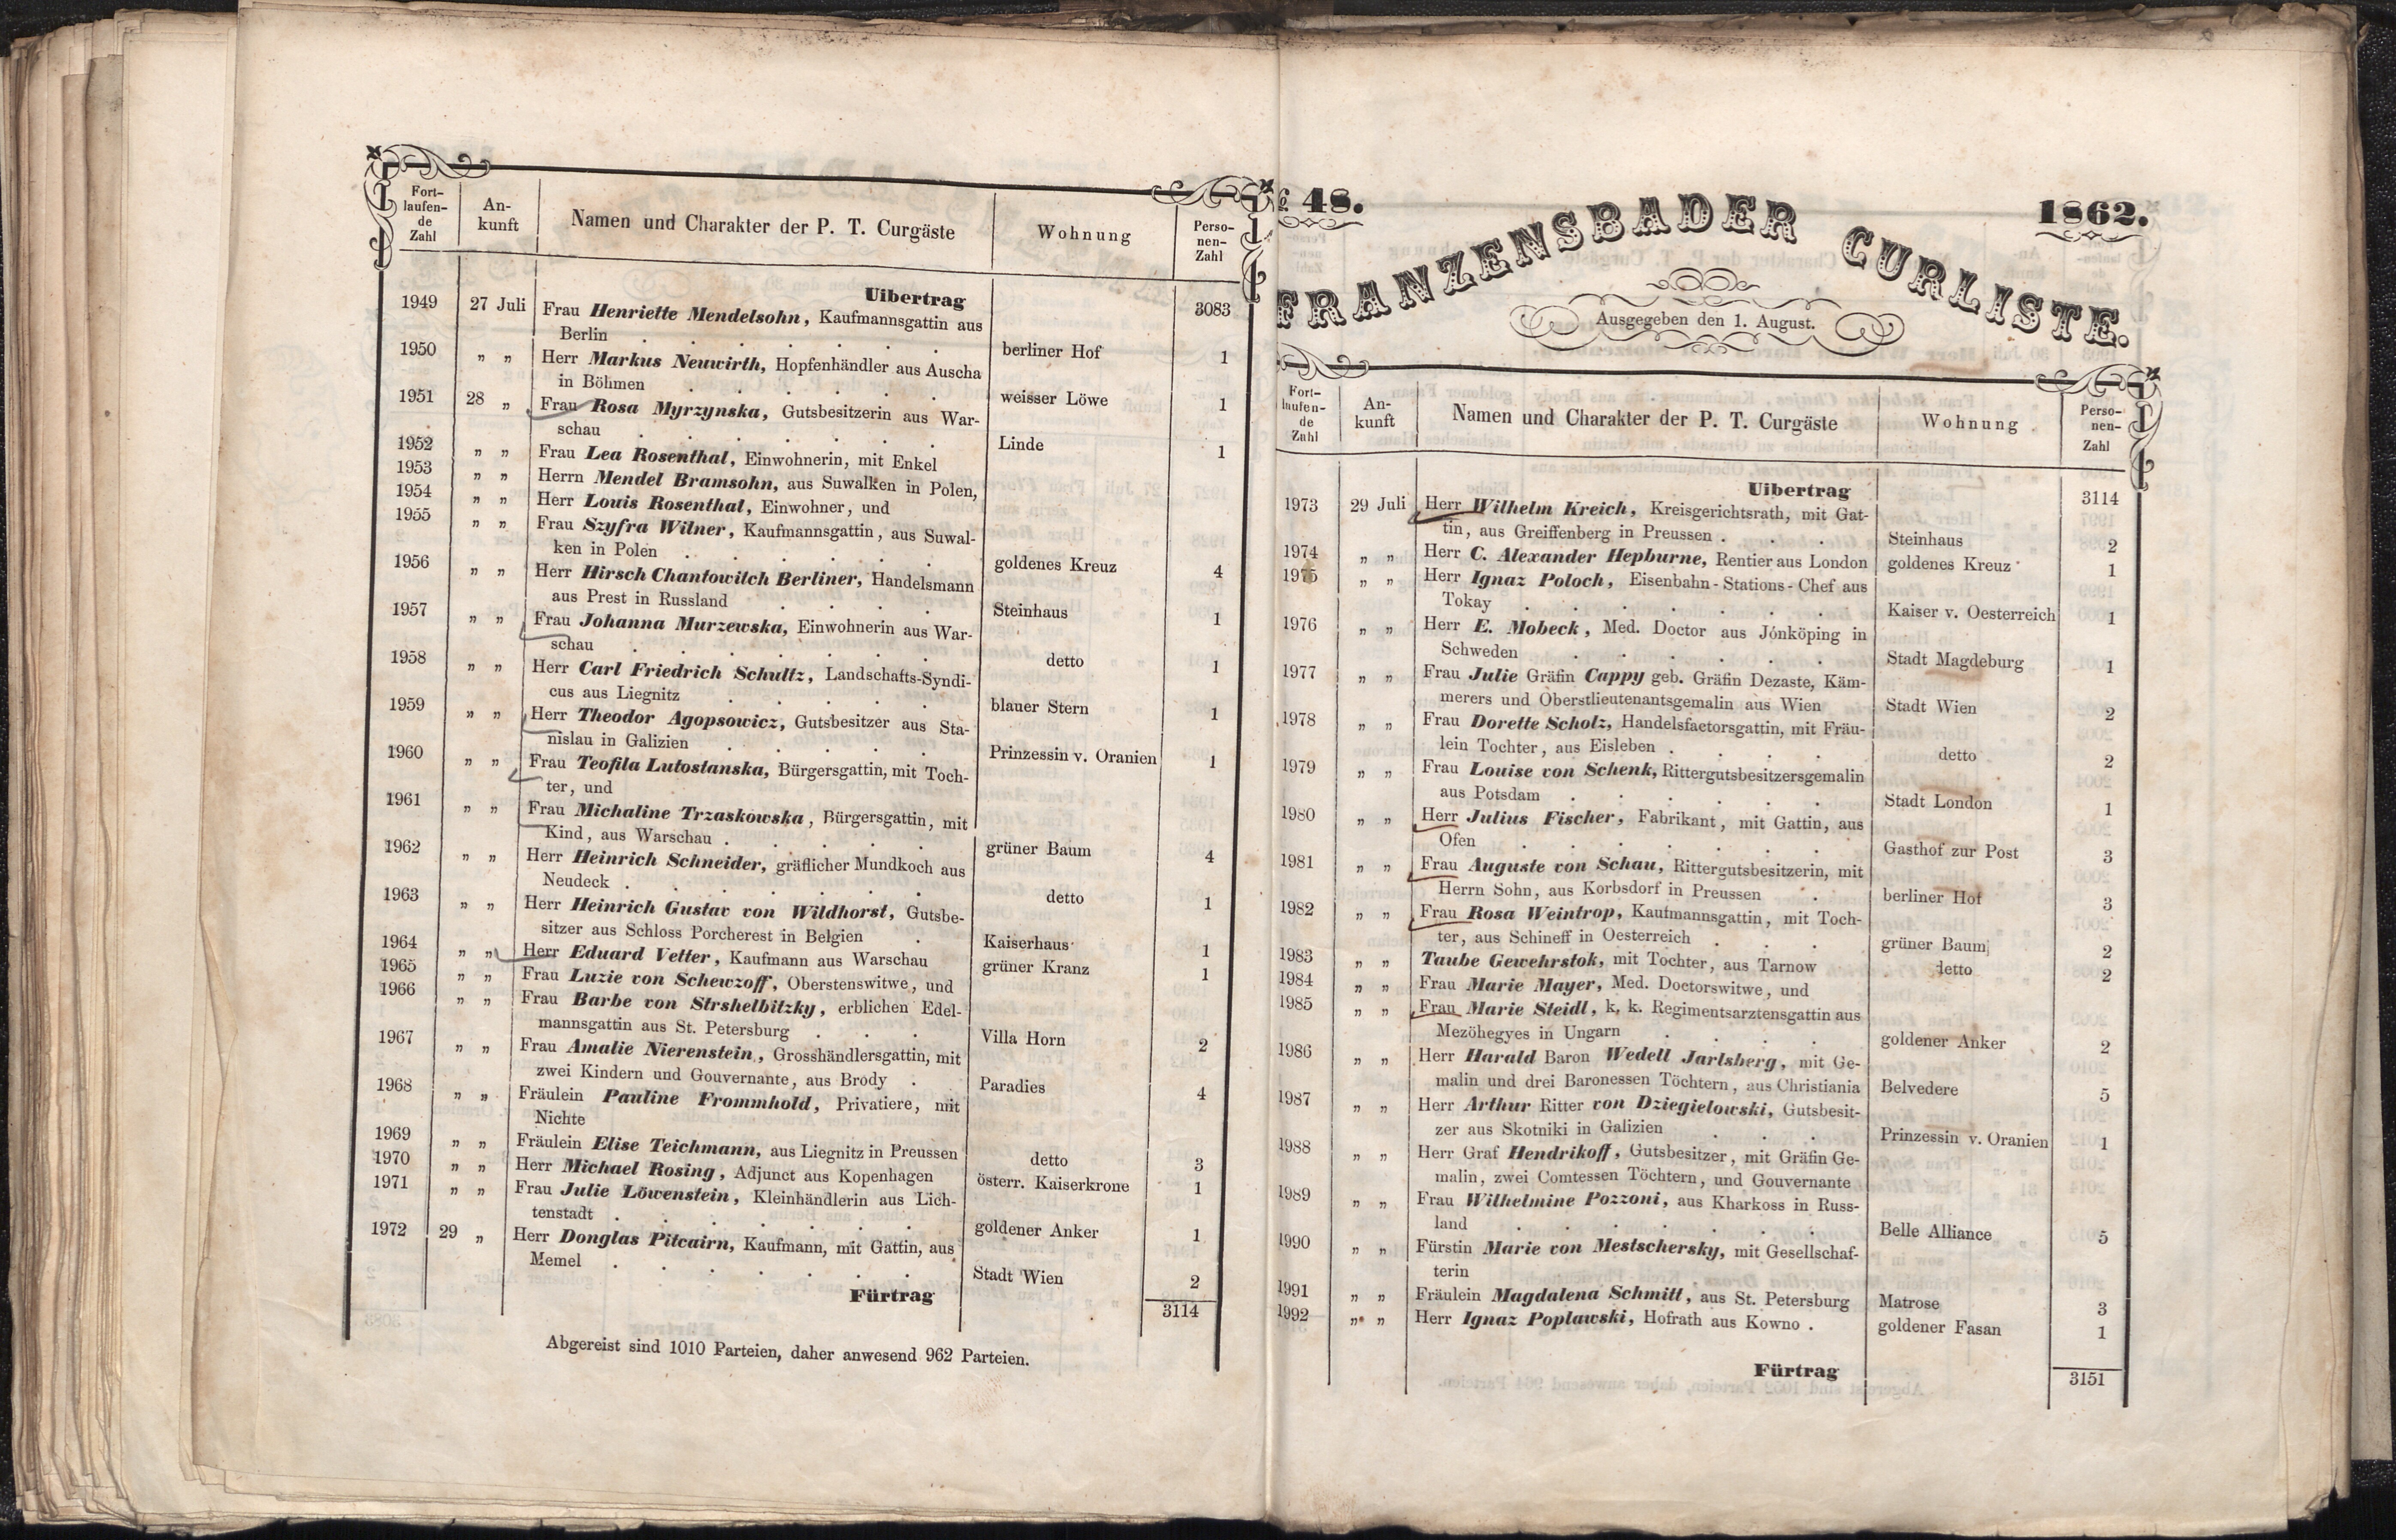 Fort-
laufen-
de
Zahl
An-
kunft
Namen und Charakter der P. T. Curgäste
Wohnung
Perso-
nen-
Zahl
Uibertrag 3083
1949 27 Juli Frau Henriette Mendelsohn, Kaufmannsgattin aus
Berlin . . . . . . . berliner Hof 1
1950 „ „ Herr Markus Neuwirth, Hopfenhändler aus Auscha
in Böhmen . . . . . . weisser Löwe 1
1951 28 „ Frau Rosa Myrzynska, Gutsbesitzerin aus War-
schau . . . . . . . Linde 1
1952 „ „ Frau Lea Rosenthal, Einwohnerin, mit Enkel
1953 „ „ Herrn Mendel Bramsohn, aus Suwalken in Polen,
1954 „ „ Herr Louis Rosenthal, Einwohner, und
1955 „ „ Frau Szyfra Wilner, Kaufmannsgattin, aus Suwal-
ken in Polen . . . . . . goldenes Kreuz 4
1956 „ „ Herr Hirsch Chantowitch Berliner, Handelsmann
aus Prest in Russland . . . . Steinhaus 1
1957 „ „ Frau Johanna Murzewska, Einwohnerin aus War-
schau . . . . . . . detto 1
1958 „ „ Herr Carl Friedrich Schultz, Landschafts-Syndi-
cus aus Liegnitz . . . . . blauer Stern 1
1959 „ „ Herr Theodor Agopsowicz, Gutsbesitzer aus Sta-
nislau in Galizien . . . . . Prinzessin v. Oranien 1
1960 „ „ Frau Teofila Lutostanska, Bürgersgattin, mit Toch-
ter, und
1961 „ „ Frau Michaline Trzaskowska, Bürgersgattin, mit
Kind, aus Warschau . . . . . grüner Baum 4
1962 „ „ Herr Heinrich Schneider, gräflicher Mundkoch aus
Neudeck . . . . . . . detto 1
1963 „ „ Herr Heinrich Gustav von Wildhorst, Gutsbe-
sitzer aus Schloss Porcherest in Belgien . Kaiserhaus 1
1964 „ „ Herr Eduard Vetter, Kaufmann aus Warschau grüner Kranz 1
1965 „ „ Frau Luzie von Schewzoff, Oberstenswitwe, und
1966 „ „ Frau Barbe von Strshelbitzky, erblichen Edel-
mannsgattin aus St. Petersburg . . . Villa Horn 2
1967 „ „ Frau Amalie Nierenstein, Grosshändlersgattin, mit
zwei Kindern und Gouvernante, aus Brody . Paradies 4
1968 „ „ Fräulein Pauline Frommhold, Privatiere, mit
Nichte
1969 „ „ Fräulein Elise Teichmann, aus Liegnitz in Preussen detto 3
1970 „ „ Herr Michael Rosing, Adjunct aus Kopenhagen österr. Kaiserkrone 1
1971 „ „ Frau Julie Löwenstein, Kleinhändlerin aus Lich-
tenstadt . . . . . . . goldener Anker 1
1972 29 „ Herr Donglas Pitcairn, Kaufmann, mit Gattin, aus
Memel . . . . . . . Stadt Wien 2
Fürtrag 3114
Abgereist sind 1010 Parteien, daher anwesend 962 Parteien.
48.
1862.
FRANZENSBADER CURLISTE.
Ausgegeben den 1. August.
Fort-
laufen-
de
Zahl
An-
kunft
Namen und Charakter der P. T. Curgäste
Wohnung
Perso-
nen-
Zahl
Uibertrag 3114
1973 29 Juli Herr Wilhelm Kreich, Kreisgerichtsrath, mit Gat-
tin, aus Greiffenberg in Preussen . . . Steinhaus 2
1974 „ „ Herr C. Alexander Hepburne, Rentier aus London goldenes Kreuz 1
1975 „ „ Herr Ignaz Poloch, Eisenbahn-Stations-Chef aus
Tokay . . . . . . . Kaiser v. Oesterreich 1
1976 „ „ Herr E. Mobeck, Med. Doctor aus Jónköping in
Schweden . . . . . . Stadt Magdeburg 1
1977 „ „ Frau Julie Gräfin Cappy geb. Gräfin Dezaste, Käm-
merers und Oberstlieutenantsgemalin aus Wien Stadt Wien 2
1978 „ „ Frau Dorette Scholz, Handelsfactorsgattin, mit Fräu-
lein Tochter, aus Eisleben . . . . detto 2
1979 „ „ Frau Louise von Schenk, Rittergutsbesitzersgemalin
aus Potsdam . . . . . . Stadt London 1
1980 „ „ Herr Julius Fischer, Fabrikant, mit Gattin, aus
Ofen . . . . . . . Gasthof zur Post 3
1981 „ „ Frau Auguste von Schau, Rittergutsbesitzerin, mit
Herrn Sohn, aus Korbsdorf in Preussen . berliner Hof 3
1982 „ „ Frau Rosa Weintrop, Kaufmannsgattin, mit Toch-
ter, aus Schineff in Oesterreich . . . grüner Baum 2
1983 „ „ Taube Gewehrstok, mit Tochter, aus Tarnow detto 2
1984 „ „ Frau Marie Mayer, Med. Doctorswitwe, und
1985 „ „ Frau Marie Steidl, k. k. Regimentsarztensgattin aus
Mezöhegyes in Ungarn . . . . goldener Anker 2
1986 „ „ Herr Harald Baron Wedell Jarlsberg, mit Ge-
malin und drei Baronessen Töchtern, aus Christiania Belvedere 5
1987 „ „ Herr Arthur Ritter von Dziegielowski, Gutsbesit-
zer aus Skotniki in Galizien . . . Prinzessin v. Oranien 1
1988 „ „ Herr Graf Hendrikoff, Gutsbesitzer, mit Gräfin Ge-
malin, zwei Comtessen Töchtern, und Gouvernante
1989 „ „ Frau Wilhelmine Pozzoni, aus Kharkoss in Russ-
land . . . . . . . Belle Alliance 5
1990 „ „ Fürstin Marie von Mestschersky, mit Gesellschaf-
terin
1991 „ „ Fräulein Magdalena Schmitt, aus St. Petersburg Matrose 3
1992 „ „ Herr Ignaz Poplawski, Hofrath aus Kowno . goldener Fasan 1
Fürtrag 3151